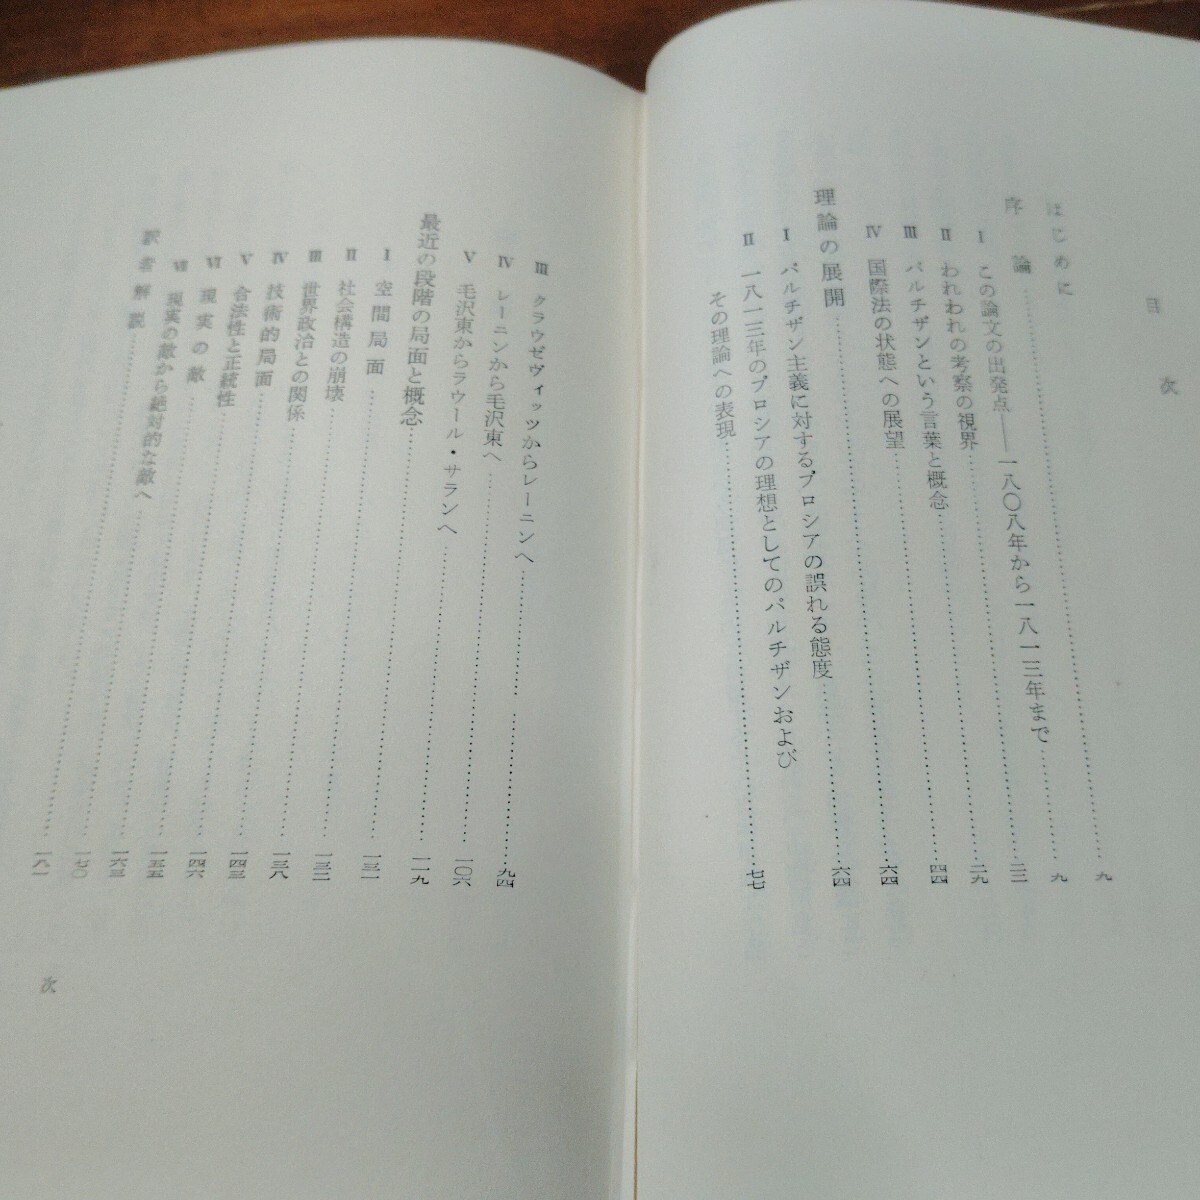 目次
はじめに
序論……九
Ⅰ この論文の出発点――一八〇八年から一八一三年まで……九
Ⅱ われわれの考察の視界……二二
Ⅲ パルチザンという言葉と概念……二九
Ⅳ 国際法の状態への展望……四四
理論の展開……六四
Ⅰ パルチザン主義に対するプロシアの誤れる態度……六四
Ⅱ 一八一三年のプロシアの理想としてのパルチザンおよび
その理論への表現……七七
Ⅲ クラウゼヴィッツからレーニンへ……九四
Ⅳ レーニンから毛沢東へ……一〇六
Ⅴ 毛沢東からラウール・サランへ……一一九
最近の段階の局面と概念……一三一
Ⅰ 空間局面……一三二
Ⅱ 社会構造の崩壊……一三八
Ⅲ 世界政治との関係……一四三
Ⅳ 技術的局面……一四六
Ⅴ 合法性と正統性……一五五
Ⅵ 現実の敵……一六三
Ⅶ 現実の敵から絶対的な敵へ……一七〇
訳者解説……一八一
次